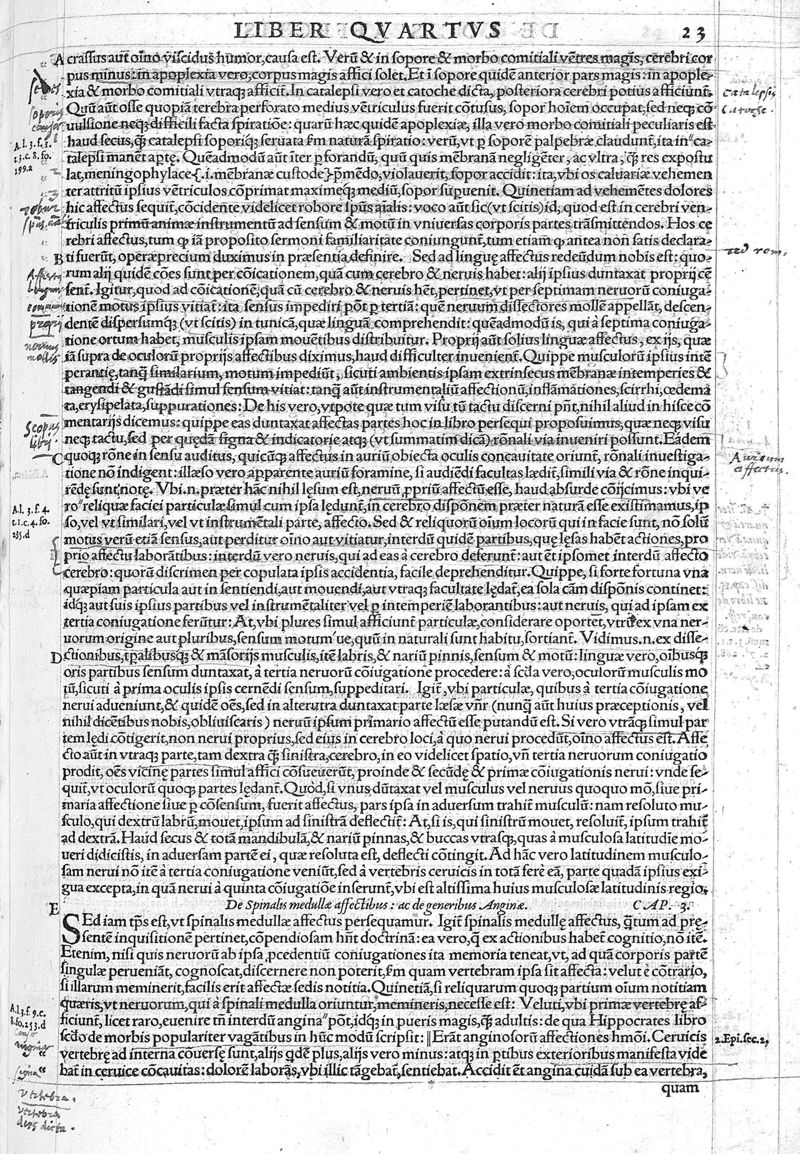 LIBER QVARTVS 23
A crassus aut̃ oĩno viscidus humor, causa est. Verũ & in sopore & morbo comitiali vẽtres magis, cerebri cor
pus minus: in apoplexia vero, corpus magis affici solet. Et ĩ sopore quidẽ anterior pars magis: in apople-
xia & morbo comitiali vtraq; afficit̃. In catalepsi vero et catoche dicta, posteriora cerebri potius afficiunt̃.
Quũ aut̃ osse quopiã terebra perforato medius vẽtriculus fuerit cõtusus, sopor hoĩem occupat, sed neq; cõ
uulsione neq; difficili facta spiratiõe: quarũ hæc quidẽ apoplexiæ, illa vero morbo comitiali peculiaris est
haud secus, q̃ catalepsi soporiq; seruata fm naturã spiratio: verũ, vt p soporẽ palpebræ claudunt̃, ita in ca-
talepsi manẽt aptę. Quẽadmodũ aut̃ ĩter pforandũ, quũ quis mẽbranã negligẽter, ac vltra, q̃ res expostu
lat, meningophylace {.i. mẽbranæ custode} pmẽdo, violauerit, sopor accidit: ita, vbi os caluariæ vehemen
ter attritũ ipsius vẽtriculos cõprimat maximeq; mediũ, sopor supuenit. Quinetiam ad vehemẽtes dolores
hic affectus sequit̃, cõcidente videlicet robore spũs aĩalis: voco aut̃ sic (vt scitis) id, quod est in cerebri ven-
triculis primũ animæ instrumentũ ad sensum & motũ in vniuersas corporis partes trãsmittendos. Hos ce
rebri affectus, tum q ia proposito sermoni familiaritate coniungunt̃, tum etiam q antea non satis declara-
B ti fuerũt, operæprecium duximus in præsentia definire. Sed ad linguę affectus redeũdum nobis est: quo-
rum alij quidẽ cões sunt per cõicationem, quã cum cerebro & neruis habet: alij ipsius duntaxat proprij cẽ
sent̃. Igitur, quod ad cõicationẽ, quã cũ cerebro & neruis hẽt, pertinet, vt per septimam neruorũ coniuga-
tionẽm motus ipsius vitiat̃: ita sensus impediri põt p tertiã: quẽ neruum dissectores mollẽ appellãt, descen-
dentẽ dispersumq; (vt scitis) in tunicã, quæ linguã comprehendit: quẽadmodũ is, qui à septima coniuga-
tione ortum habet, musculis ipsam mouẽtibus distribuitur. Proprij aut̃ solius linguæ affectus, ex ijs, quæ
iã supra de oculorũ proprijs affectibus diximus, haud difficulter inuenient̃. Quippe musculorũ ipsius intẽ
perantię, tanq̃ similarium, motum impediũt, sicuti ambientis ipsam extrinsecus mẽbranæ intemperies &
tangendi & gustãdi simul sensum vitiat: tanq̃ aut̃ instrumentaliũ affectionũ, inflãmationes, scirrhi, œdema
ta, erysipelata, suppurationes: De his vero, vtpote quæ tum visu tũ tactu discerni pñt, nihil aliud in hisce cõ
mentarijs dicemus: quippe eas duntaxat affectas partes hoc in libro persequi proposuimus, quæ neq; visu
neq; tactu, sed per quędã signa & indicatorie atq; (vt summatim dicã) rõnali via inueniri possunt. Eãdem
C quoq; rõne in sensu auditus, quicũq; affectus in auriũ obiecta oculis concauitate oriunt̃, rõnali inuestiga-
tione nõ indigent: illæso vero apparente auriũ foramine, si audiẽdi facultas lædit̃, simili via & rõne inqui-
rẽdę sunt notę. Vbi .n. præter hãc nihil lęsum est, neruũ ppriũ affectũ esse, haud absurde cõijcimus: vbi ve
ro reliquæ faciei particulæ simul cum ipsa lędunt̃, in cerebro dispõnem præter naturã esse existimamus, ip
so, vel vt similari, vel vt instrumẽtali parte, affecto. Sed & reliquorũ oĩum locorũ qui in facie sunt, nõ solũ
motus verũ etiã sensus, aut perditur oĩno aut vitiatur, interdũ quidẽ partibus, quę lęsas habẽt actiones, pro
prio affectu laborãtibus: interdũ vero neruis, qui ad eas à cerebro deferunt̃: aut ẽt ipsomet interdũ affecto
cerebro: quorũ discrimen per copulata ipsis accidentia, facile deprehenditur. Quippe, si forte fortuna vna
quæpiam particula aut in sentiendi, aut mouendi, aut vtraq; facultate lędat̃, ea sola cãm dispõnis continet:
idq; aut suis ipsius partibus vel instrumẽtaliter vel p intemperiẽ laborantibus: aut neruis, qui ad ipsam ex
tertia coniugatione ferũtur: At, vbi plures simul afficiunt̃ particulæ, considerare oportet, vtrũ ex vna ner-
uorum origine aut pluribus, sensum motum'ue, quũ in naturali sunt habitu, sortiant̃. Vidimus .n. ex disse-
D ctionibus, tp̃alibusq; & mãsorijs musculis, itẽ labris, & nariũ pinnis, sensum & motũ: linguæ vero, oĩbusq;
oris partibus sensum duntaxat, à tertia neruorũ cõiugatione procedere: à scđa vero, oculorũ musculis mo
tũ, sicuti à prima oculis ipsis cernẽdi sensum, suppeditari. Igit̃, vbi particulæ, quibus à tertia coniugatione
nerui adueniunt, & quidẽ oẽs, sed in alterutra duntaxat parte læsæ vñr (nunq̃ aut̃ huius præceptionis, vel
nihil dicẽtibus nobis, obliuiscaris) neruũ ipsum primario affectũ esse putandũ est. Si vero vtrãq; simul par
tem lędi cõtigerit, non nerui proprius, sed eius in cerebro loci, à quo nerui procedũt, oĩno affectus est. Affe
cto aut̃ in vtraq; parte, tam dextra q̃ sinistra, cerebro, in eo videlicet spatio, vñ tertia neruorum coniugatio
prodit, oẽs vicinę partes simul affici cõsueuerũt, proinde & secũdę & primæ cõiugationis nerui: vnde se-
quit̃, vt oculorũ quoq; partes lędant̃. Quod, si vnus dũtaxat vel musculus vel neruus quoquo mõ, siue pri-
maria affectione siue p cõsensum, fuerit affectus, pars ipsa in aduersum trahit̃ musculũ: nam resoluto mu-
sculo, qui dextrũ labrũ, mouet, ipsum ad sinistrã deflectit̃: At, si is, qui sinistrũ mouet, resoluit̃, ipsum trahit̃
ad dextrã. Haud secus & totã mandibulã, & nariũ pinnas, & buccas vtrasq;, quas à musculosa latitudĩe mo-
ueri didicistis, in aduersam partẽ ei, quæ resoluta est, deflecti cõtingit. Ad hãc vero latitudinem musculo-
sam nerui nõ itẽ à tertia coniugatione veniũt, sed à vertebris ceruicis in totã fere eã, parte quadã ipsius exi-
gua excepta, in quã nerui à quinta cõiugatiõe inserunt̃, vbi est altissima huius musculosæ latitudinis regio.
E De Spinalis medullæ affectibus: ac de generibus Anginæ. CAP. 3.
SEd iam tp̃s est, vt spinalis medullæ affectus persequamur. Igit̃ spinalis medullę affectus, q̃tum ad prę-
sentẽ inquisitionẽ pertinet, cõpendiosam hñt doctrinã: ea vero, q̃ ex actionibus habet̃ cognitio, nõ itẽ.
Etenim, nisi quis neruorũ ab ipsa pcedentiũ coniugationes ita memoria teneat, vt, ad quã corporis partẽ
singulæ perueniãt, cognoscat, discernere non poterit, fm quam vertebram ipsa sit affecta: velut è cõtrario,
si illarum meminerit, facilis erit affectæ sedis notitia. Quinetiã, si reliquarum quoq; partium oĩum notitiam
quæris, vt neruorum, qui à spinali medulla oriuntur, memineris, necesse est: Veluti, vbi primæ vertebrę af-
ficiunt̃, licet raro, euenire tñ interdũ angina põt, idq; in pueris magis, q̃ adultis: de qua Hippocrates libro
scđo de morbis populariter vagãtibus in hũc modũ scripsit: Erãt anginosorũ affectiones hmõi. Ceruicis
vertebrę ad interna cõuersę sunt, alijs qđẽ plus, alijs vero minus: atq; in ptibus exterioribus manifesta vide
bat̃ in ceruice cõcauitas: dolorẽ laborãs, vbi illic tãgebat̃, sentiebat. Accidit ẽt angina cuidã sub ea vertebra,
quam
A.l.3.f.1.
t.3.c.8.fo.
199.2
A.l.3.f.4.
t.1.c.4.fo.
235.d
A.l.3.f.9.c.
8.fo.253.d
2.Epi.sec.2,
Catalepsis
Catoche.
Aurium
affectus.
Scopus
libri
vertebra.
vertebra
dens dicta.